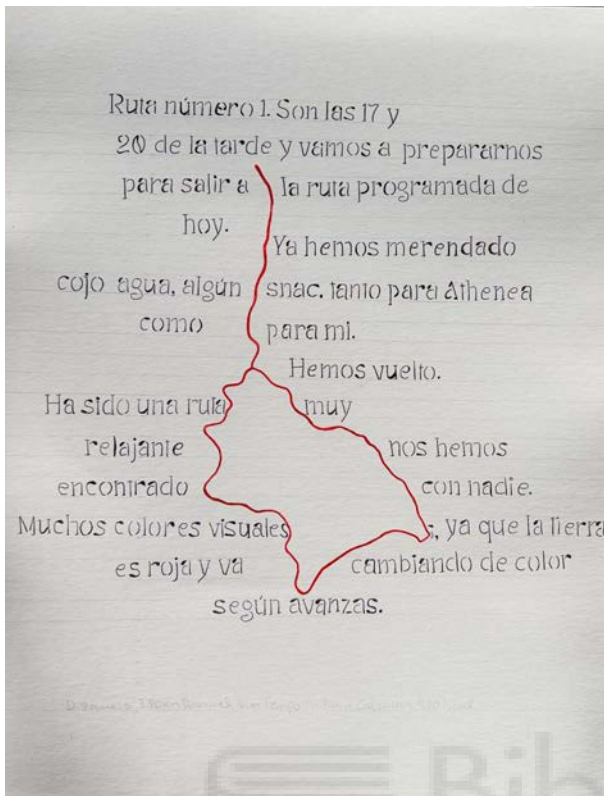 Ruta número 1. Son las 17 y
20 de la tarde y vamos a prepararnos
para salir a la ruta programada de
hoy.
Ya hemos merendado
cojo agua, algún snac, tanto para Athenea
como para mi.
Hemos vuelto.
Ha sido una ruta muy
relajante nos hemos
encontrado con nadie.
Muchos colores visuales, ya que la tierra
es roja y va cambiando de color
según avanzas.
Bib